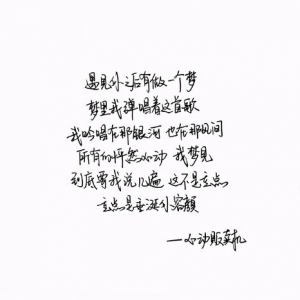 遇见你之后有做一个梦
梦里我弹唱着这首歌
我吟唱在那银河 也在那凡间
所有的怦然心动 我梦见
到底要我说几遍 这不是主点
主点是垂涎你容颜
——心动贩卖机